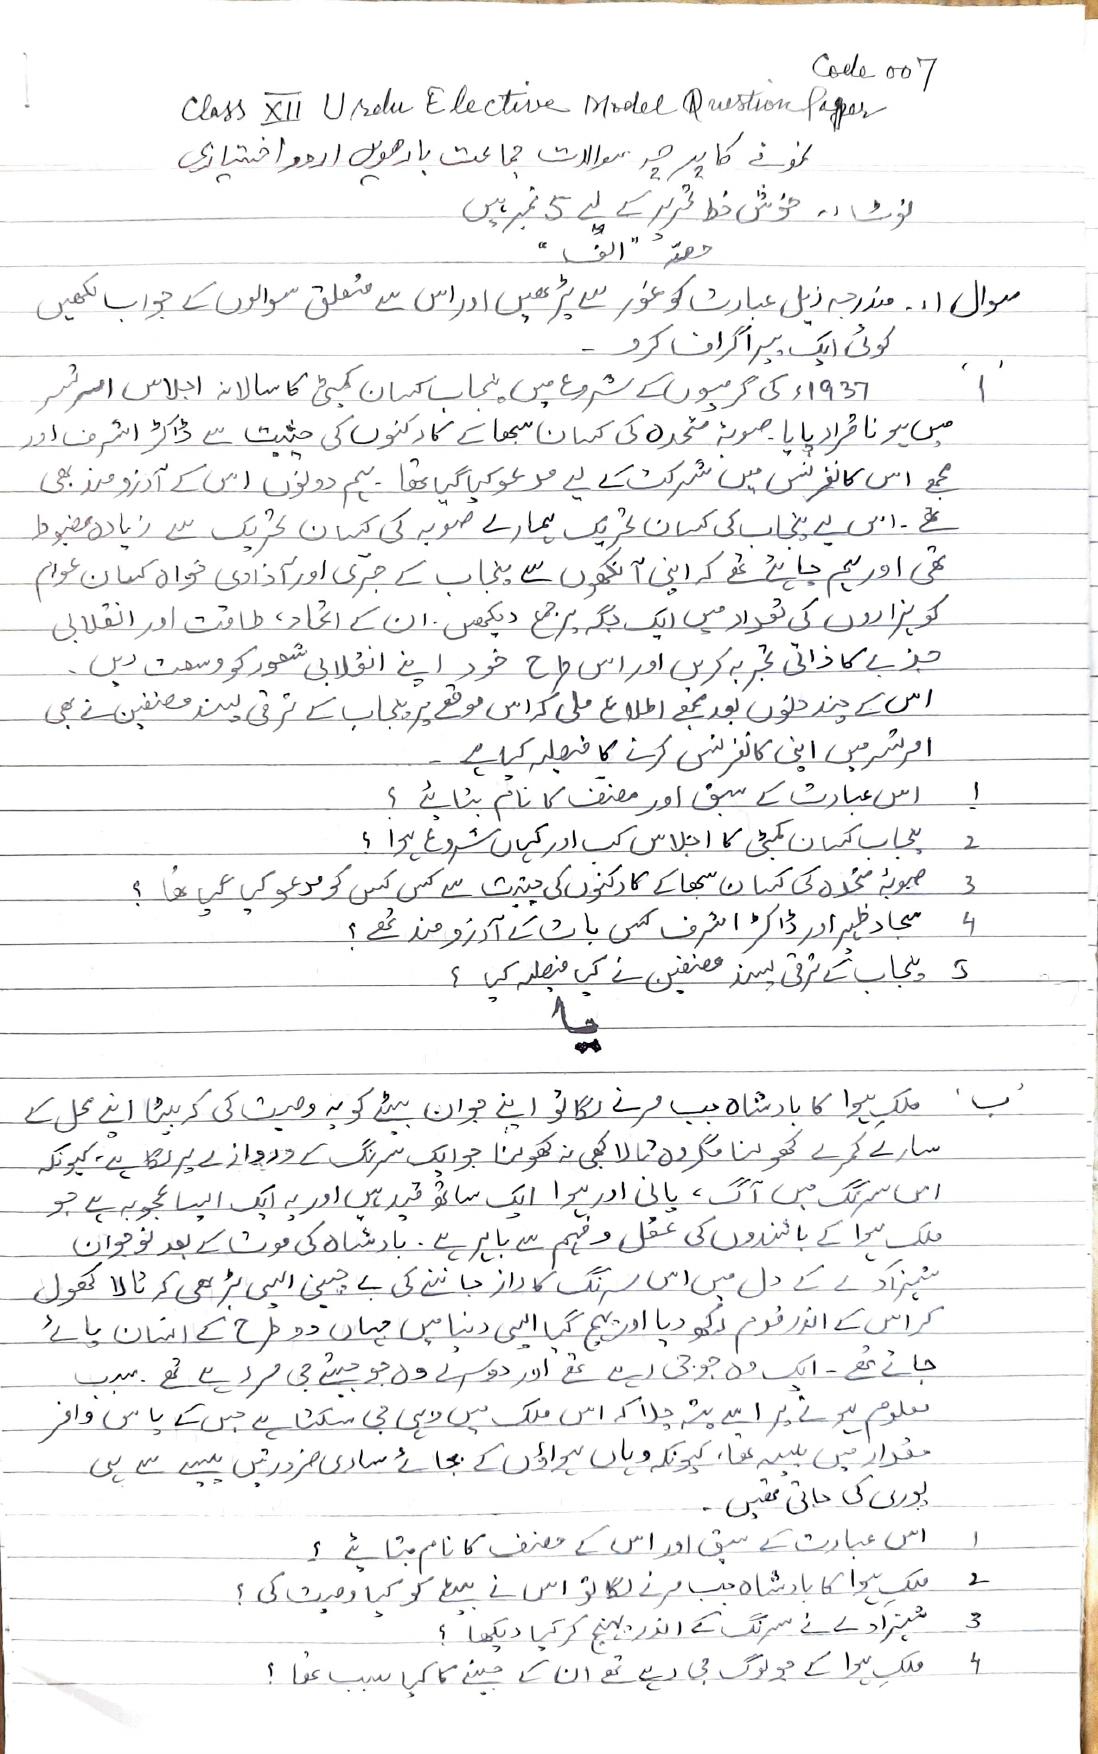 Code 007
Class XII Urdu Elective Model Question Paper
نمونے کا پرچہ سوالات جماعت بارھویں اردو اختیاری
نوٹ:۔ خوش خط تحریر کے لیے 5 نمبر ہیں
حصہ "الف"
سوال 1:۔ مندرجہ ذیل عبارت کو غور سے پڑھیں اور اس سے متعلق سوالوں کے جواب لکھیں
کوئی ایک پیراگراف کرو۔
'ا' 1937ء کی گرمیوں کے شروع میں پنجاب کسان کمیٹی کا سالانہ اجلاس امرتسر
میں ہونا قرار پایا۔ صوبۂ متحدہ کی کسان سبھا کے کارکنوں کی حیثیت سے ڈاکٹر اشرف اور
مجھے اس کانفرنس میں شرکت کے لیے مدعو کیا گیا تھا۔ ہم دونوں اس کے آرزو مند بھی
تھے۔ اس لیے پنجاب کی کسان تحریک ہمارے صوبہ کی کسان تحریک سے زیادہ مضبوط
تھی اور ہم چاہتے تھے کہ اپنی آنکھوں سے پنجاب کے جری اور آزادی خواہ کسان عوام
کو ہزاروں کی تعداد میں ایک جگہ پر جمع دیکھیں۔ ان کے اتحاد، طاقت اور انقلابی
جذبے کا ذاتی تجربہ کریں اور اس طرح خود اپنے انقلابی شعور کو وسعت دیں۔
اس کے چند دنوں بعد مجھے اطلاع ملی کہ اس موقعے پر پنجاب کے ترقی پسند مصنفین نے بھی
امرتسر میں اپنی کانفرنس کرنے کا فیصلہ کیا ہے۔
1 اس عبارت کے سبق اور مصنف کا نام بتائیے ؟
2 پنجاب کسان کمیٹی کا اجلاس کب اور کہاں شروع ہوا ؟
3 صوبۂ متحدہ کی کسان سبھا کے کارکنوں کی حیثیت سے کس کس کو مدعو کیا گیا تھا ؟
4 سجاد ظہیر اور ڈاکٹر اشرف کس بات کے آرزو مند تھے ؟
5 پنجاب کے ترقی پسند مصنفین نے کیا فیصلہ کیا ؟
یا
'ب' ملکِ ہوا کا بادشاہ جب مرنے لگا تو اپنے جوان بیٹے کو یہ وصیت کی کہ بیٹا اپنے محل کے
سارے کمرے کھولنا مگر وہ تالا کبھی نہ کھولنا جو ایک سرنگ کے دروازے پر لگا ہے۔ کیونکہ
اس سرنگ میں آگ، پانی اور ہوا ایک ساتھ قید ہیں اور یہ ایک ایسا عجوبہ ہے جو
ملکِ ہوا کے باشندوں کی عقل و فہم سے باہر ہے۔ بادشاہ کی موت کے بعد نوجوان
شہزادے کے دل میں اس سرنگ کا راز جاننے کی بے چینی ایسی بڑھی کہ تالا کھول
کر اس کے اندر قدم رکھ دیا اور پہنچ گیا ایسی دنیا میں جہاں دو طرح کے انسان پائے
جاتے تھے۔ ایک وہ جو جی رہے تھے اور دوسرے وہ جو جیتے جی مر رہے تھے۔ سبب
معلوم ہونے پر اسے پتہ چلا کہ اس ملک میں وہی جی سکتا ہے جس کے پاس وافر
مقدار میں پیسہ تھا، کیونکہ وہاں ہواؤں کے بجائے ساری ضرورتیں پیسے سے ہی
پوری کی جاتی تھیں۔
1 اس عبارت کے سبق اور اس کے مصنف کا نام بتائیے ؟
2 ملکِ ہوا کا بادشاہ جب مرنے لگا تو اس نے بیٹے کو کیا وصیت کی ؟
3 شہزادے نے سرنگ کے اندر پہنچ کر کیا دیکھا ؟
4 ملکِ ہوا کے جو لوگ جی رہے تھے ان کے جینے کا کیا سبب تھا ؟